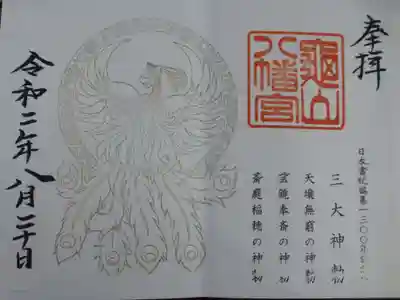 奉拝
龜山
八幡宮
日本書紀編纂一三〇〇年
三大神勅
天壌無窮の神勅
宝鏡奉斎の神勅
斎庭稲穂の神勅
令和二年八月二十日